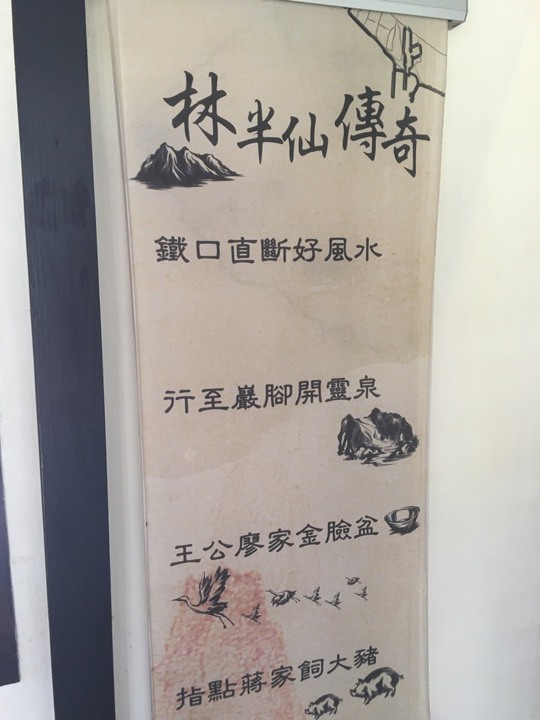 林半仙傳奇
鐵口直斷好風水
行至巖腳開靈泉
王公廖家金臉盆
指點蔣家飼大豬